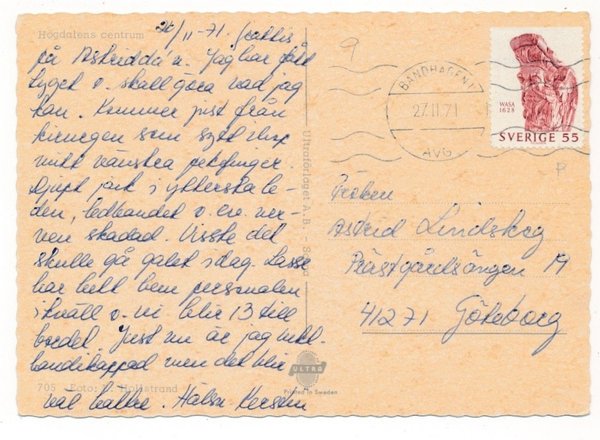 Högdalens centrum
26/11-71.
på Astriddan. Jag har fått
tyget o. skall göra vad jag
kan. Kommer just från
kirurgen som sytt ihop
mitt vänstra pekfinger.
Djupt jack i yttersta le-
den, ledbandet o. ev. ner-
ven skadad. Visste det
skulle gå galet idag. Lasse
har bett hem personalen
ikväll o. vi blir 13 till
bordet. Just nu är jag
handikappad men det blir
väl bättre. Hälsn Kerstin
705 Foto:
Ultraförlaget A.B.
ULTRA
Printed in Sweden
9
BANDHAGEN 1
27.11.71
AVG.
WASA
1628
SVERIGE 55
P
Fröken
Astrid Lindskog
Prästgårdsängen 19
41271 Göteborg